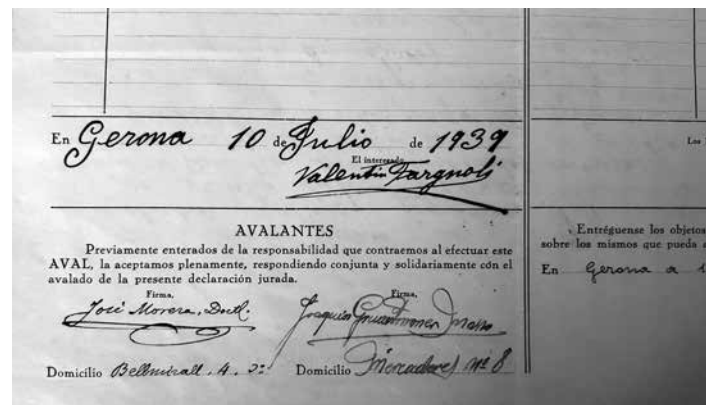 En Gerona 10 de Julio de 1939
El interesado
Valentin Fargnoli
Los
AVALANTES
Previamente enterados de la responsabilidad que contraemos al efectuar este
AVAL, la aceptamos plenamente, respondiendo conjunta y solidariamente con el
avalado de la presente declaración jurada.
Firma, Firma,
José Morera, Joaquin
Domicilio Bellmirall, 4, 2º Domicilio Mercaders Nº 8
Entréguense los objetos
sobre los mismos que pueda
En Gerona a 1